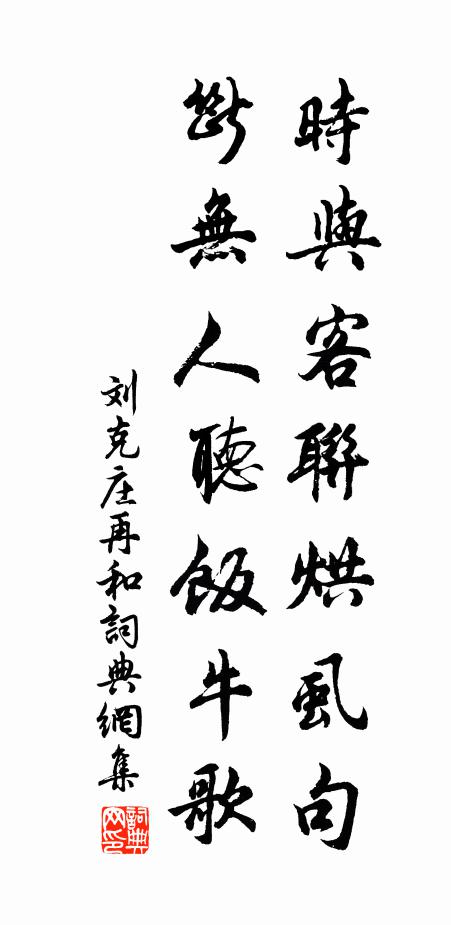 時與客聯烘虱句
斷無人聽飯牛歌
刘克庄再和詞典網集
詞典网印